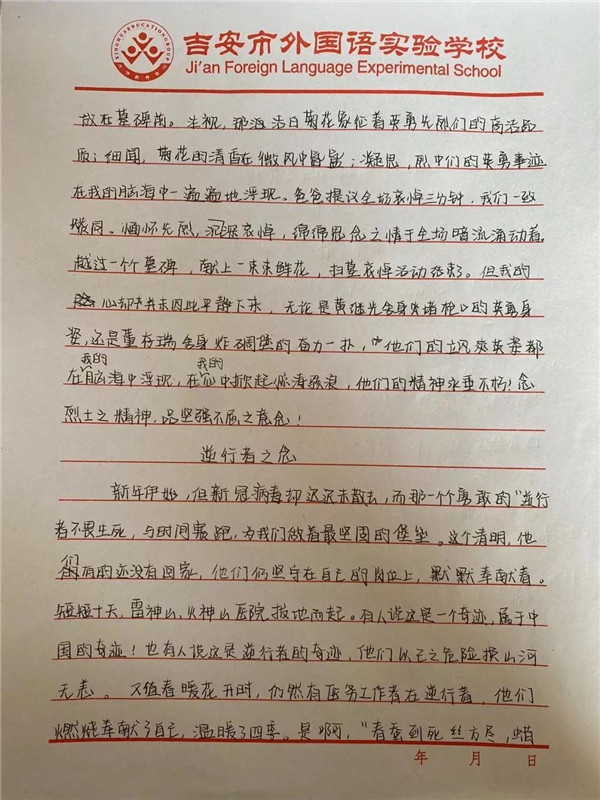 吉安市外国语实验学校
Ji'an Foreign Language Experimental School
放在墓碑前。注视,那洁白菊花象征着英勇先烈们的高洁品
质;细闻,菊花的清香在微风中;凝思,烈士们的英勇事迹
在我的脑海中一遍遍地浮现。爸爸提议全场哀悼三分钟,我们一致
赞同。缅怀先烈,沉深哀悼,绵绵思念之情于全场暗流涌动着。
越过一个个墓碑,献上一束束鲜花,扫墓哀悼活动结束了。但我的
心却并未因此平静下来,无论是黄继光舍身堵枪口的英勇身
姿,还是董存瑞舍身炸碉堡的奋力一扑,他们的飒爽英姿都
在我的脑海中浮现,在我的心中掀起惊涛骇浪,他们的精神永垂不朽!念
烈士之精神,品坚强不屈之意念!
逆行者之念
新年伊始,但新冠病毒却迟迟未散去,而那一个勇敢的“逆行
者不畏生死,与时间赛跑,为我们做着最坚固的堡垒。这个清明,他
们有的还没有回家,他们仍坚守在自己的岗位上,默默奉献着。
短短十天,雷神山,火神山医院拔地而起。有人说这是一个奇迹,属于中
国的奇迹!也有人说这是逆行者的奇迹,他们以己之危险换山河
无恙。又值春暖花开时,仍然有医务工作者在逆行着,他们
燃烧奉献了自己,温暖了四季。是啊,“春蚕到死丝方尽,蜡
年 月 日